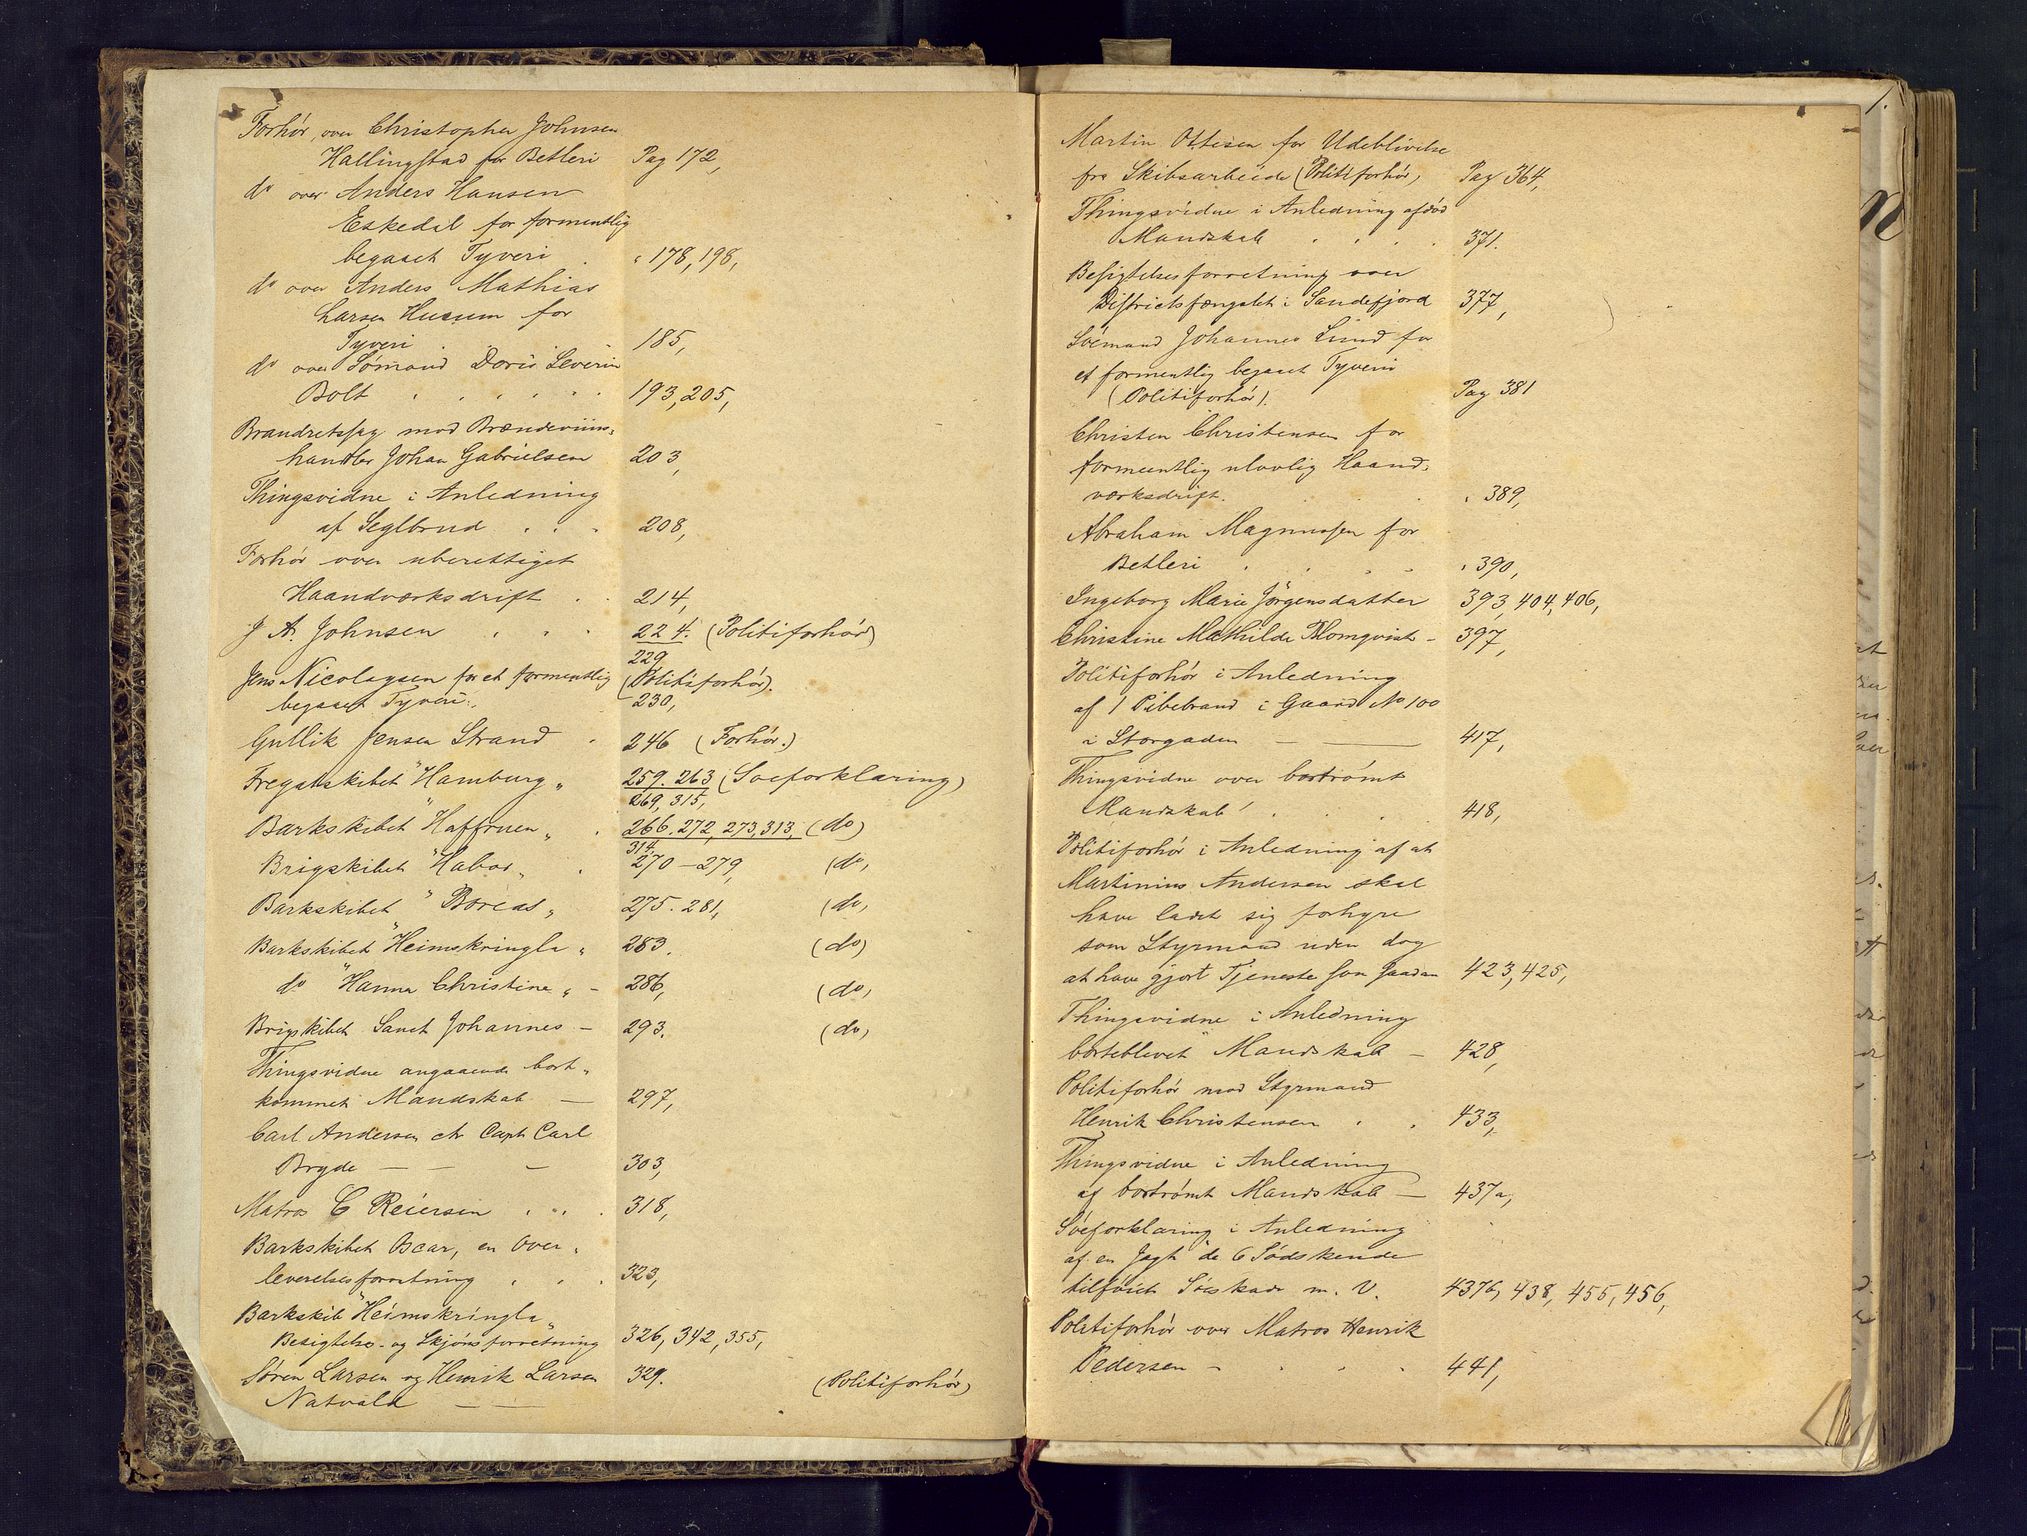 Forhør, over Christopher Johnsen
Hallingstad for Betleri Pag 172,
do over Anders Hansen
Eskedal for formentlig
begaaet Tyveri . " 178, 198,
do over Anders Mathias
Larsen Husum for
Tyveri . . 185,
do over Sømand Doris Severin
Bolt . . . . . . 193, 205,
Brandretssag mod Brændeviins-
handler Johan Gabrielsen 203,
Thingsvidne i Anledning
af Seglbrud . . . 208,
Forhør over uberettiget
Haandværksdrift . . 214,
J A. Johnsen . . . 224. (Politiforhør)
229
Jens Nicolaysen for et formentlig (Politiforhør).
begaaet Tyveri 230,
Gullik Jensen Strand . 246 (Forhør.)
Fregatskibet "Hamburg" 259. 263 (Søeforklaring)
269, 315,
Barkskibet "Haffruen" . 266. 272, 273, 313, (do)
314
Brigskibet "Habor" . 270 – 279, (do,
Barkskibet "Boreas" 275. 281, (do,
Barkskibet "Heimskringla" 283. (do)
do "Hanna Christine" – 286, (do,
Brigskibet Sanct Johannes – 293. (do,
Thingsvidne angaaende bort-
kommet Mandskab — 297,
Carl Andersen ctr Capt Carl
Bryde — — — 303,
Matros C Reiersen . . . 318,
Barkskibet Oscar, en Over-
leverelsesforretning . . . 323,
Barkskib "Heimskringla"
Besigtelse- og Skjønsforretning 326, 342, 355,
Søren Larsen og Henrik Larsen 329. (Politiforhør)
Natvald — —
1.
Martin Ottesen for Udeblivelse
fra Skibsarbeide (Politiforhør, Pag 364,
Thingsvidne i Anledning afdød
Mandskab . . . . 371.
Besigtelsesforretning over
Districtsfængslet i Sandefjord 377,
Søemand Johannes Lund for
et formentlig begaaet Tyveri
(Politiforhør). Pag 381
Christen Christensen for
formentlig ulovlig Haand-
værksdrift. . . . " 389,
Abraham Magnussen for
Betleri . . . . " 390,
Ingeborg Marie Jörgensdatter 393, 404, 406,
Christine Mathilde Blomqvist – 397,
Politiforhør i Anledning
af 1 Pibebrand i Gaard No 100
i Storgaden — — 417,
Thingsvidne over bortrømt
Mandskab . . . . 418,
Politiforhør i Anledning af at
Martinius Andersen skal
have ladet sig forhyre
som Styrmand uden dog
at have gjort Tjeneste som saadan 423, 425,
Thingsvidne i Anledning
borteblevet Mandskab – 428,
Politiforhør mod Styrmand
Henrik Christensen . . 433,
Thingsvidne i Anledning
af bortrømt Mandskab — 437a,
Søeforklaring i Anledning
af en Jagt "de 6 Sødskende
tilføiet Søeskade m. V. 437b, 438, 455, 456,
Politiforhør over Matros Henrik
Pedersen – . . . 441,